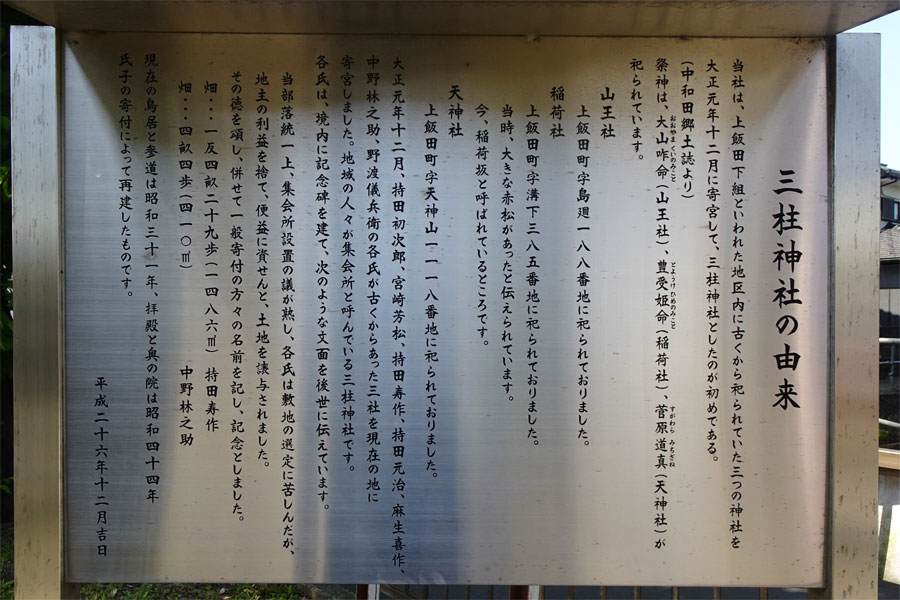 三柱神社の由来
当社は、上飯田下組といわれた地区内に古くから祀られていた三つの神社を
大正元年十二月に寄宮して、三柱神社としたのが初めである。
(中和田郷土誌より)
祭神は、大山咋命(山王社)、豊受姫命(稲荷社)、菅原道真(天神社)が
おおやまくいのみこと
とようけひめのみこと
すがわらみちざね
祀られています。
山王社
上飯田町字島廻一八八番地に祀られておりました。
稲荷社
上飯田町字溝下三八五番地に祀られておりました。
当時、大きな赤松があったと伝えられています。
今、稲荷坂と呼ばれているところです。
天神社
上飯田町字天神山一一一八番地に祀られておりました。
大正元年十二月、持田初次郎、宮崎芳松、持田寿作、持田元治、麻生喜作、
中野林之助、野渡儀兵衛の各氏が古くからあった三社を現在の地に
寄宮しました。地域の人々が集会所と呼んでいる三柱神社です。
各氏は、境内に記念碑を建て、次のような文面を後世に伝えています。
当部落統一上、集会所設置の議が熟し、各氏は敷地の選定に苦しんだが、
地主の利益を捨て、便益に資せんと、土地を譲与されました。
その徳を頌し、併せて一般寄付の方々の名前を記し、記念としました。
畑・・・一反四畝二十九歩(一四八六㎡) 持田寿作
畑・・・四畝四歩(四一〇㎡) 中野林之助
現在の鳥居と参道は昭和三十一年、拝殿と奥の院は昭和四十四年
氏子の寄付によって再建したものです。
平成二十六年十二月吉日